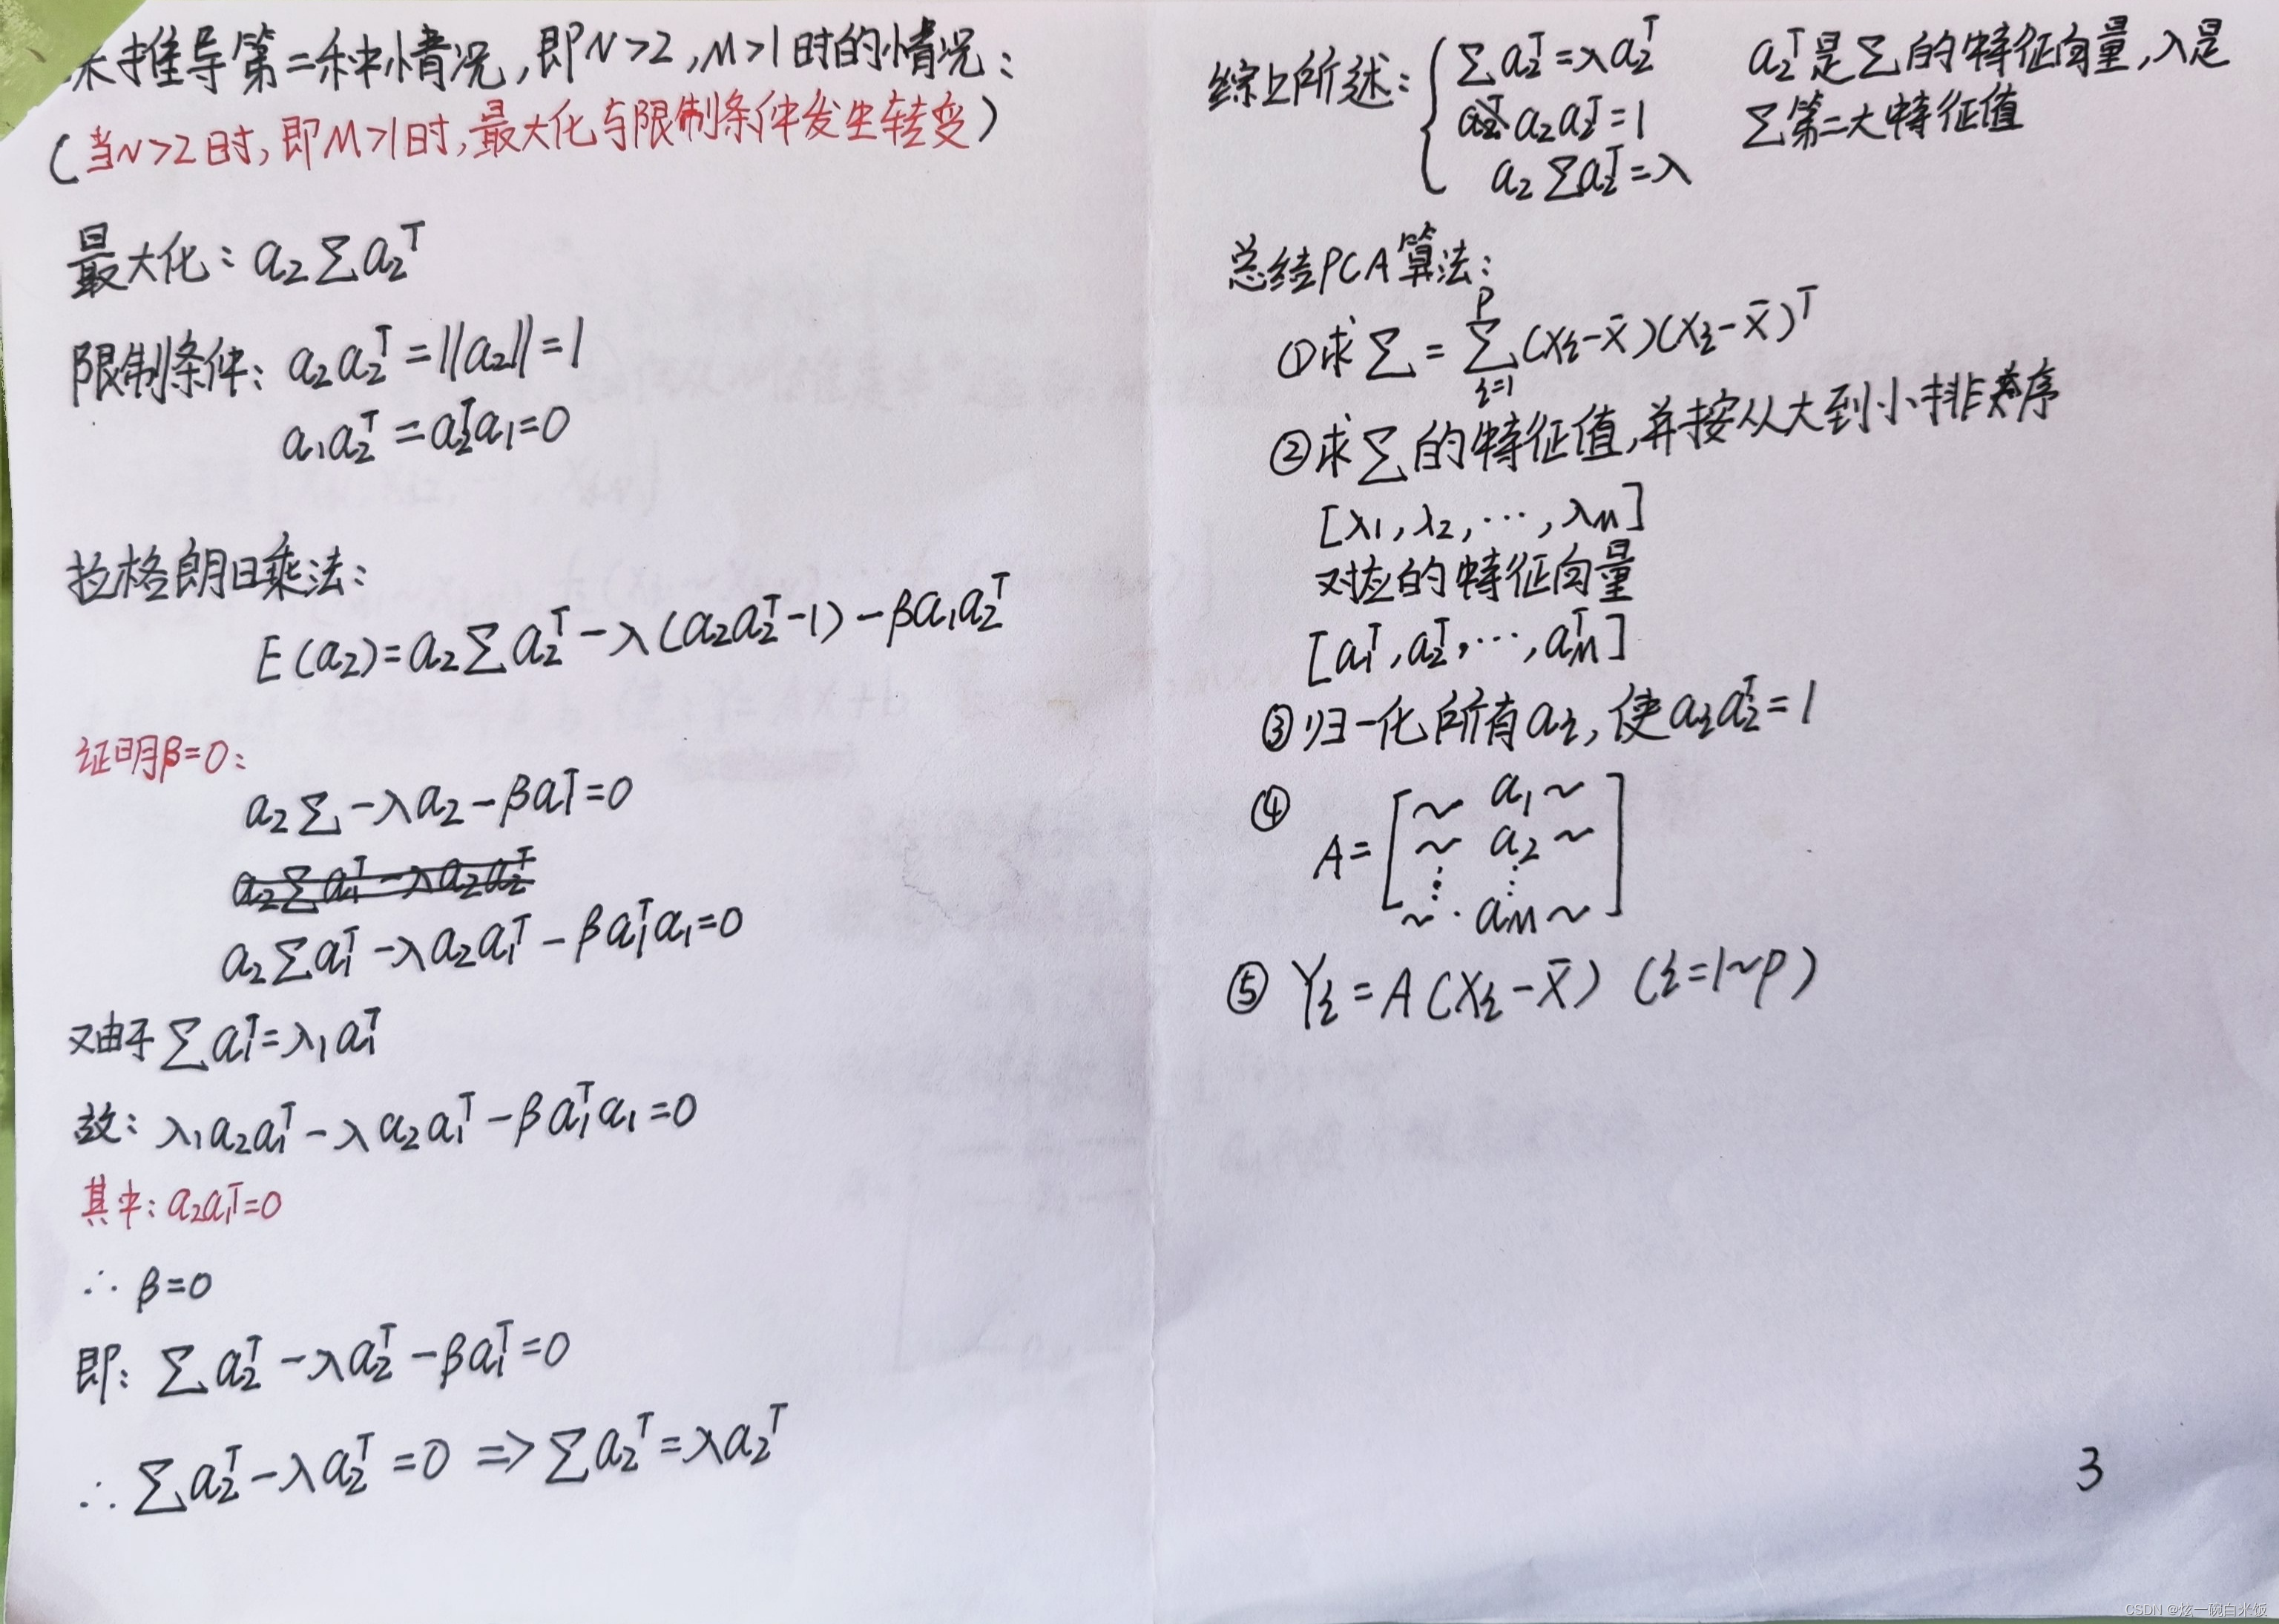 来推导第二种情况,即N>2,M>1时的情况:
(当N>2时,即M>1时,最大化与限制条件发生转变)
最大化: a₂Σa₂ᵀ
限制条件: a₂a₂ᵀ=||a₂||=1
a₁a₂ᵀ=a₂ᵀa₁=0
拉格朗日乘法:
E(a₂)=a₂Σa₂ᵀ-λ(a₂a₂ᵀ-1)-βa₁a₂ᵀ
证明β=0:
a₂Σ-λa₂-βa₁ᵀ=0
a₂Σa₁ᵀ-λa₂a₂ᵀ
a₂Σa₁ᵀ-λa₂a₁ᵀ-βa₁ᵀa₁=0
又由于Σa₁ᵀ=λ₁a₁ᵀ
故: λ₁a₂a₁ᵀ-λa₂a₁ᵀ-βa₁ᵀa₁=0
其中: a₂a₁ᵀ=0
∴ β=0
即: Σa₂ᵀ-λa₂ᵀ-βa₁ᵀ=0
∴ Σa₂ᵀ-λa₂ᵀ=0 => Σa₂ᵀ=λa₂ᵀ
综上所述: { Σa₂ᵀ=λa₂ᵀ a₂ᵀ是Σ的特征向量,λ是
a₂a₂ᵀ=1 Σ第二大特征值
a₂Σa₂ᵀ=λ
总结PCA算法:
①求Σ=∑ᵢ₌₁ᴾ(Xᵢ-X̄)(Xᵢ-X̄)ᵀ
②求Σ的特征值,并按从大到小排序
[λ₁,λ₂,…,λM]
对应的特征向量
[a₁ᵀ,a₂ᵀ,…,aMᵀ]
③归一化所有aᵢ,使aᵢaᵢᵀ=1
④
A=[~ a₁ ~
~ a₂ ~
⋮ ⋮
~ aM ~]
⑤ Yᵢ=A(Xᵢ-X̄) (i=1~P)
3
CSDN @炫一碗白米饭